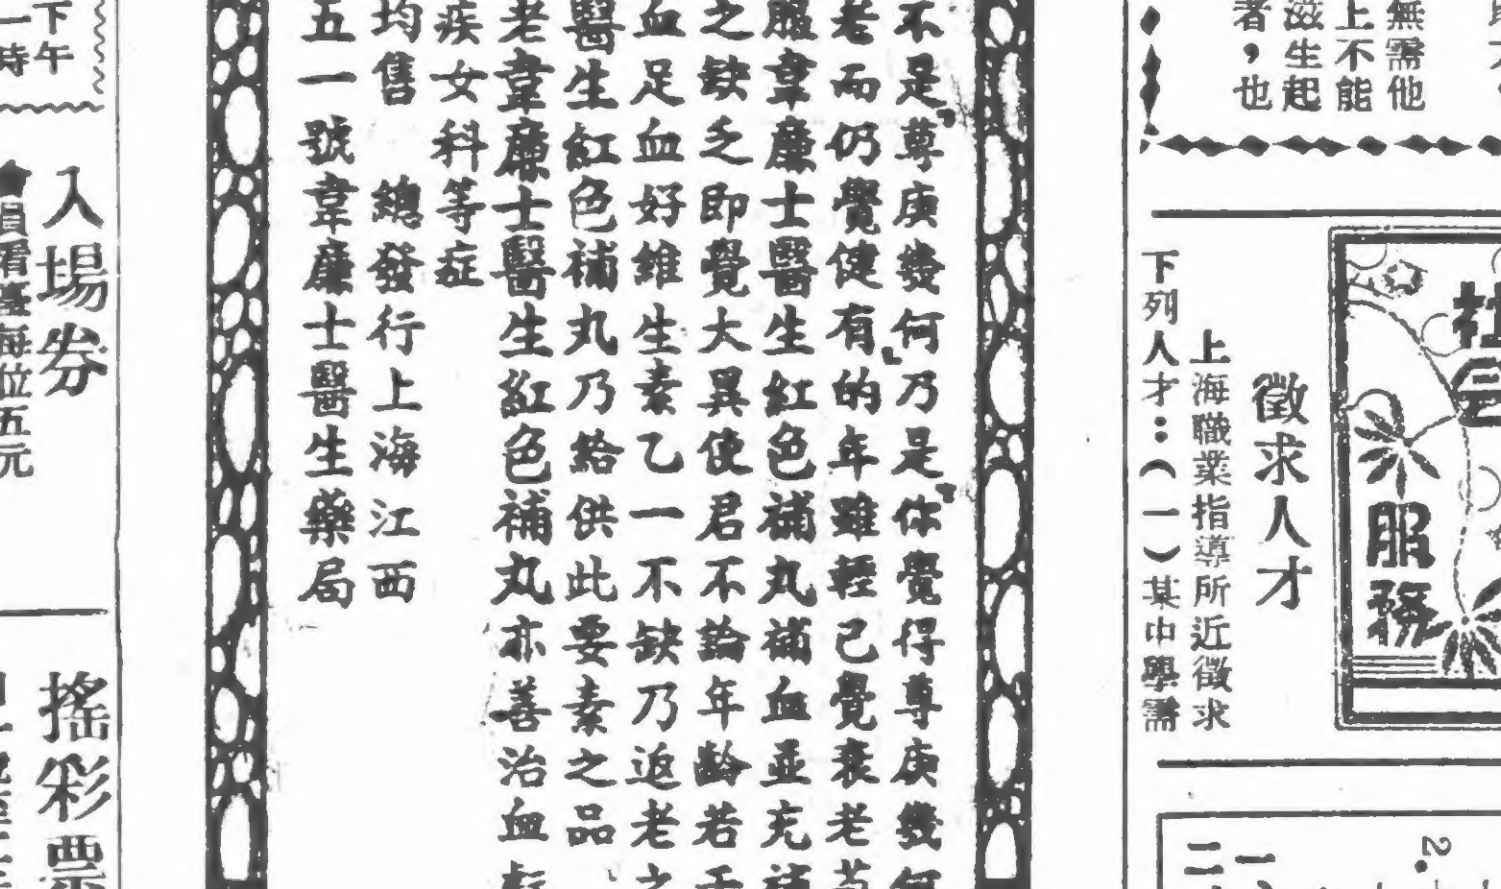 無需他
上不能
滋生起
者，也
社會
服務
徵求人才
上海職業指導所近徵求
下列人才：（一）某中學需
2.
一
二
不是『尊庚幾何』乃是『你覺得尊庚幾何
老而仍覺健有的年雖輕已覺衰老苟
服韋廉士醫生紅色補丸補血並充補
之缺乏即覺大異使君不論年齡若干
血足血好維生素乙一不缺乃返老之
醫生紅色補丸乃給供此要素之品
老韋廉士醫生紅色補丸亦善治血虧
疾女科等症
均售 總發行上海江西
五一號韋廉士醫生藥局
下午
一時
入場券
會員看臺每位五元
搖彩票